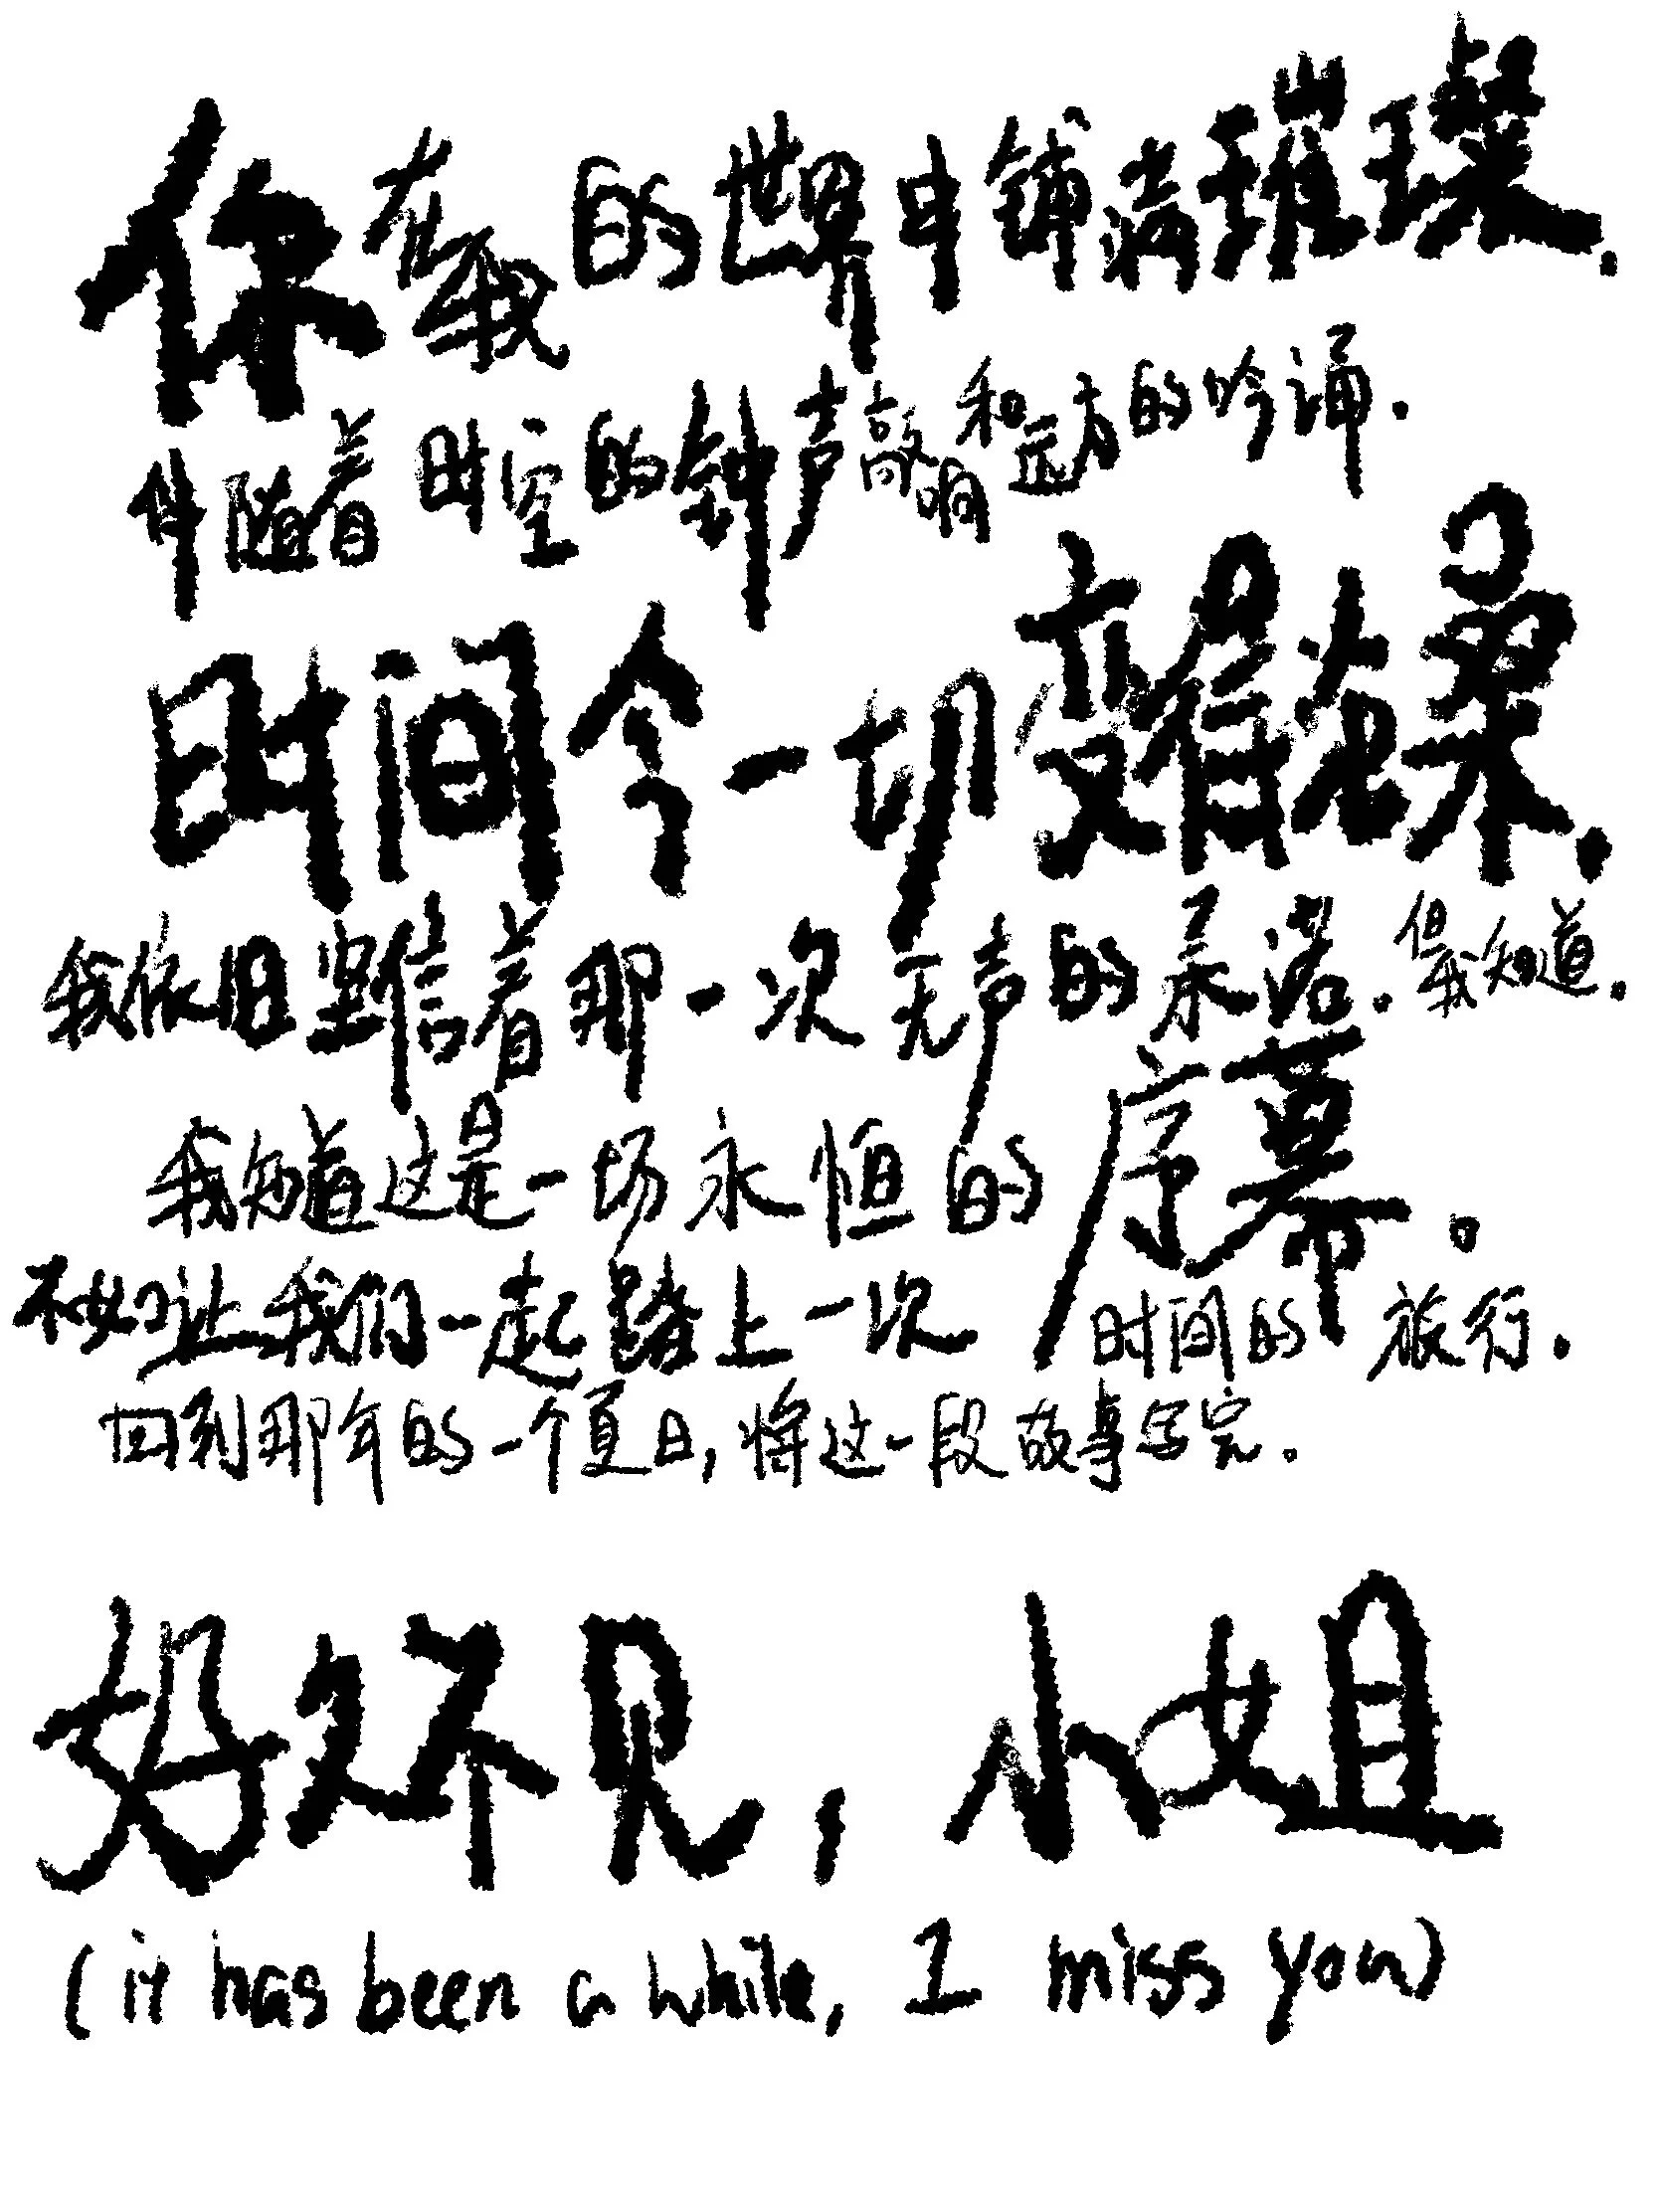 你在我的世界中铺满璀璨.
伴随着时空的钟声敲响和远方的吟诵.
时间令一切变得沧桑.
我依旧坚信着那一次无声的承诺.但我知道.
我知道这是一场永恒的序幕。
不如让我们一起踏上一次时间的旅行.
回到那年的一个夏日,将这一段故事写完.
好久不见,小姐
(it has been a while, I miss you)